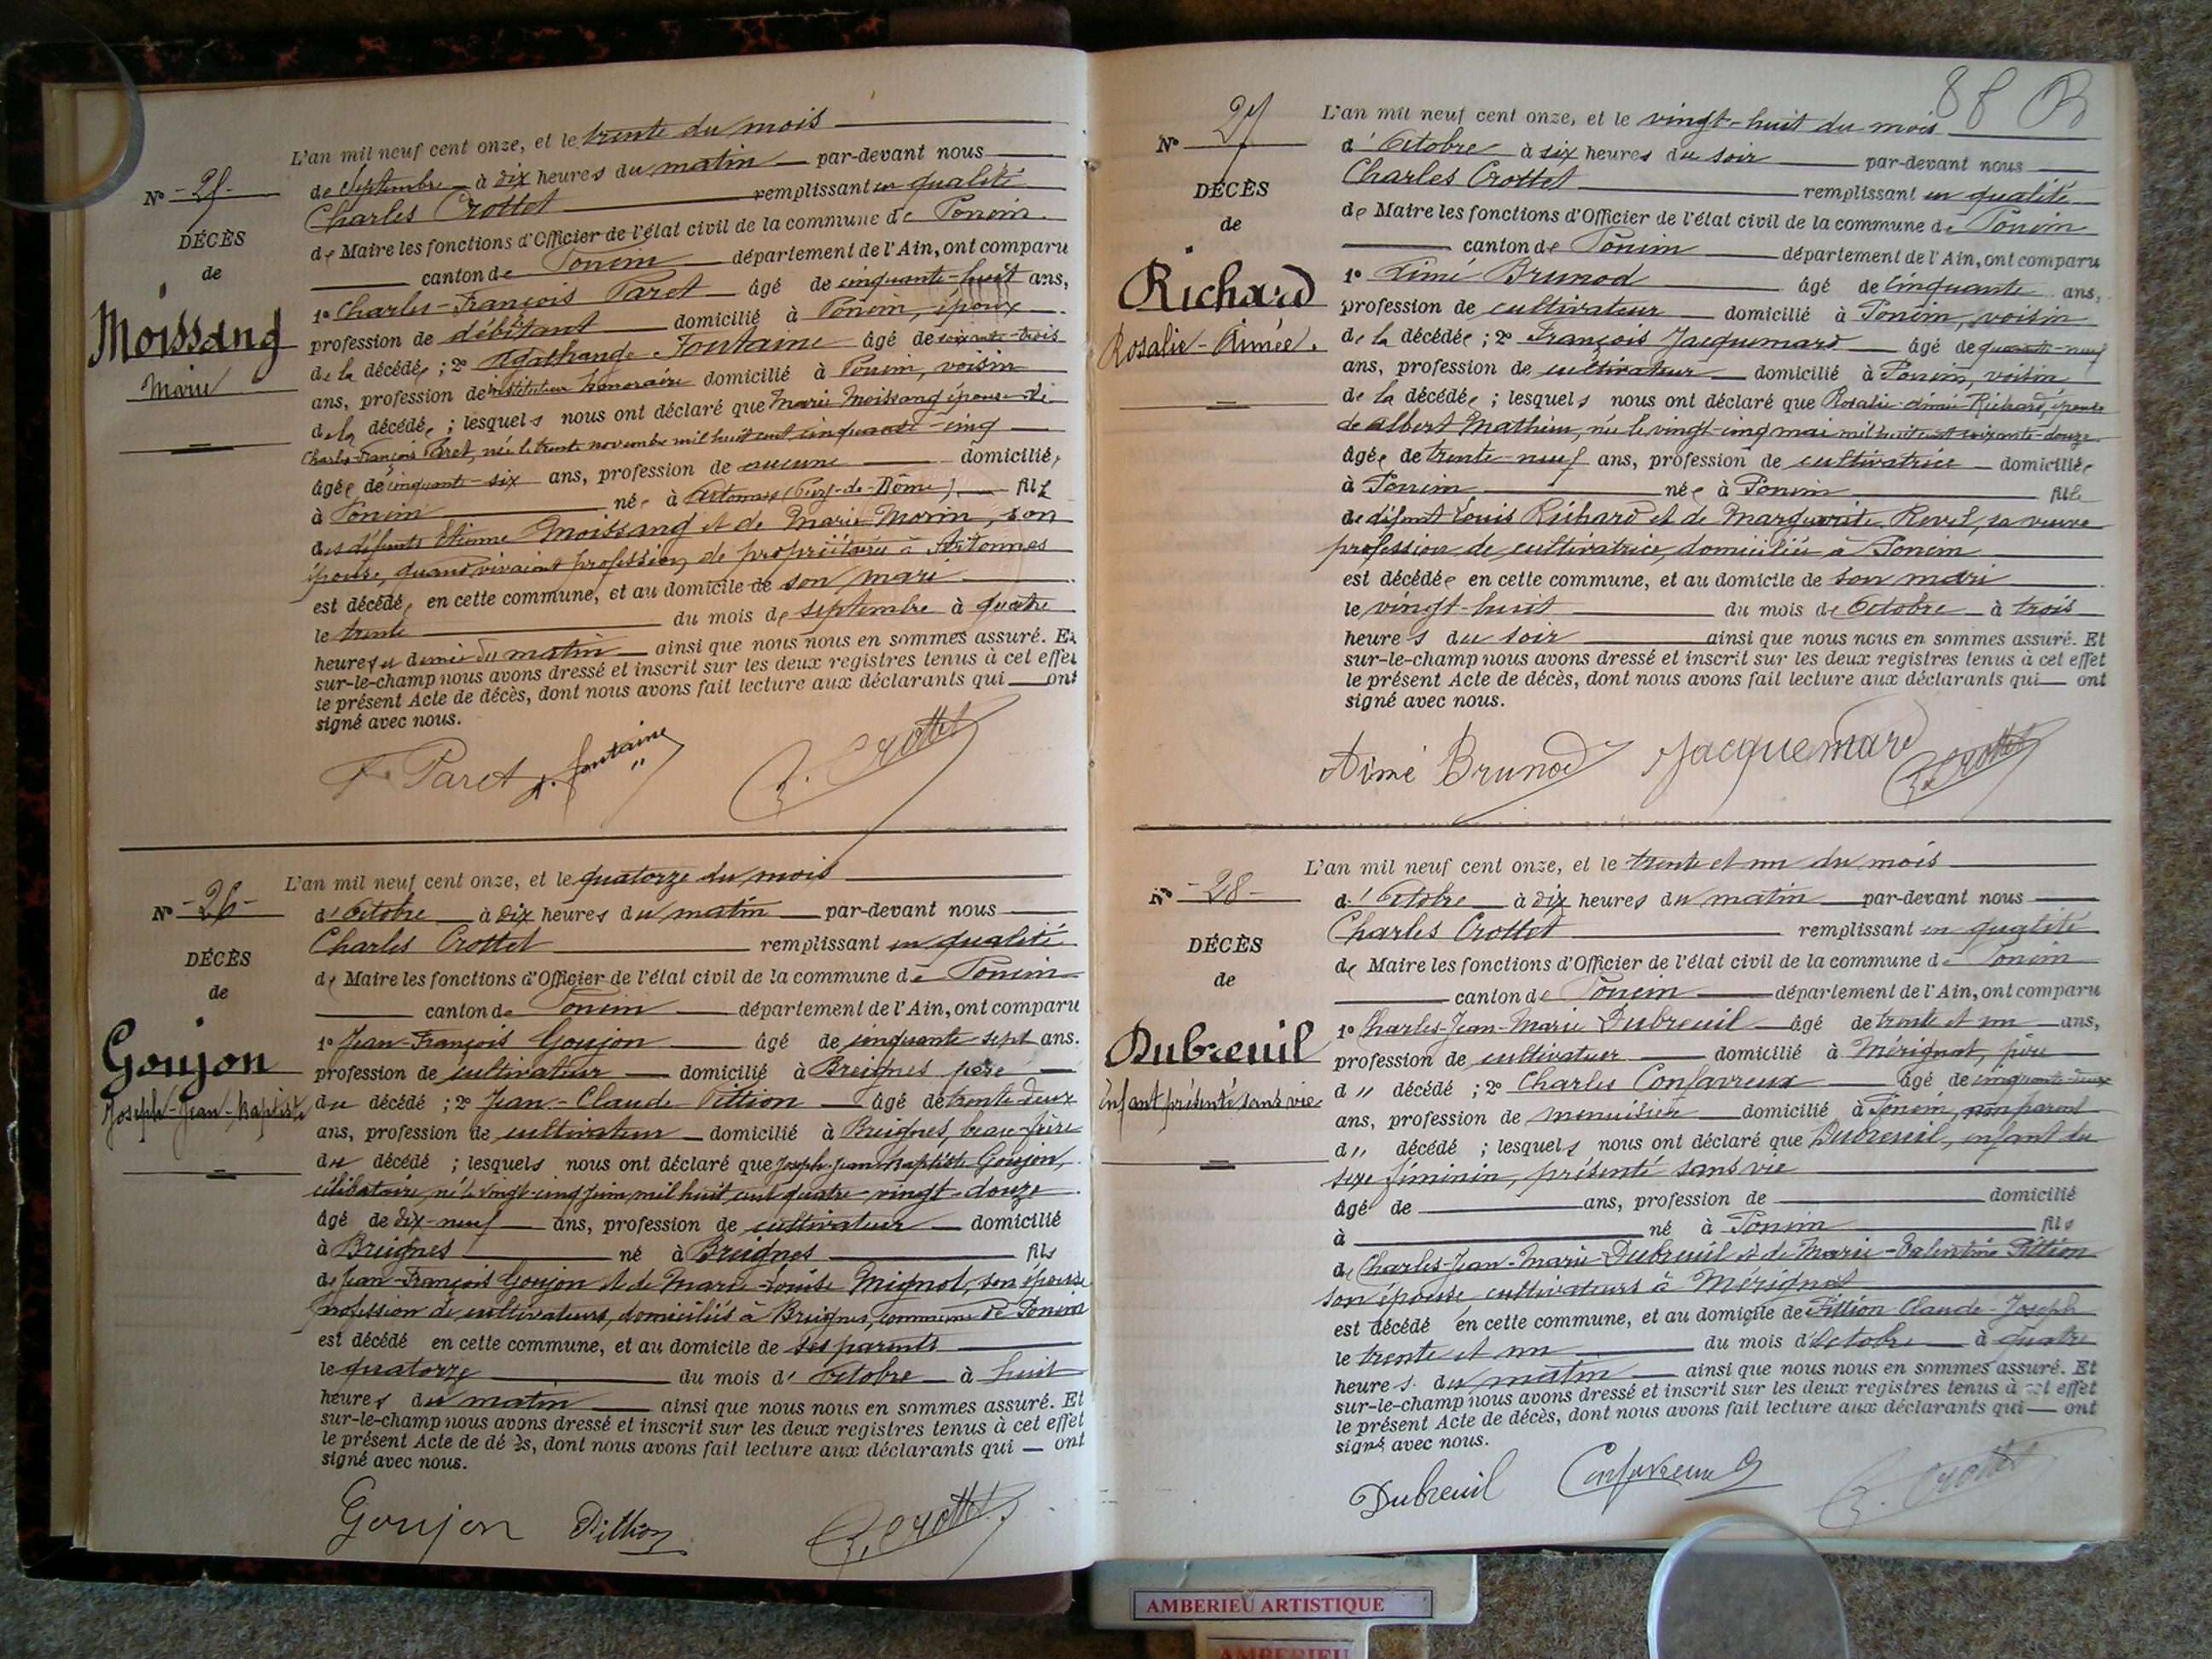 L'an mil neuf cent onze, et le trente du mois
N° -25-
de Septembre à dix heures du matin par-devant nous
Charles Crottet remplissant en qualité
DÉCÈS
de Maire les fonctions d'Officier de l'état civil de la commune de Poncin
de
canton de Poncin département de l'Ain, ont comparu
1° Charles-François Paret âgé de cinquante-huit ans,
Moissang
profession de débitant domicilié à Poncin, époux
Marie
de la décédée ; 2° Agathange Fontaine âgé de soixante-trois
ans, profession de instituteur honoraire domicilié à Poncin, voisin
de la décédée ; lesquels nous ont déclaré que Marie Moissang épouse de
Charles-François Paret, née le trente novembre mil huit cent cinquante-cinq
âgée de cinquante-six ans, profession de aucune domiciliée
à Poncin née à Artonnes (Puy-de-Dôme) fille
des défunts Etienne Moissang et de Marie Morin, son
épouse, quand vivaient profession de propriétaires à Artonnes
est décédée en cette commune, et au domicile de son mari
le trente du mois de septembre à quatre
heures et demie du matin ainsi que nous nous en sommes assuré. Et
sur-le-champ nous avons dressé et inscrit sur les deux registres tenus à cet effet
le présent Acte de décès, dont nous avons fait lecture aux déclarants qui ont
signé avec nous.
F. Paret A. fontaine C. Crottet
L'an mil neuf cent onze, et le quatorze du mois
N° -26-
d'Octobre à dix heures du matin par-devant nous
Charles Crottet remplissant en qualité
DÉCÈS
de Maire les fonctions d'Officier de l'état civil de la commune de Poncin
de
canton de Poncin département de l'Ain, ont comparu
1° Jean-François Goujon âgé de cinquante-sept ans.
Goujon
profession de cultivateur domicilié à Breignes père
Joseph-Jean-Baptiste
du décédé ; 2° Jean-Claude Pittion âgé de trente-deux
ans, profession de cultivateur domicilié à Breignes, beau-frère
du décédé ; lesquels nous ont déclaré que Joseph-Jean-Baptiste Goujon,
célibataire, né le vingt-cinq juin mil huit cent quatre-vingt-douze
âgé de dix-neuf ans, profession de cultivateur domicilié
à Breignes né à Breignes fils
de Jean-François Goujon et de Marie-Louise Mignot, son épouse
profession de cultivateurs, domiciliés à Breignes, commune de Poncin
est décédé en cette commune, et au domicile de ses parents
le quatorze du mois d'Octobre à huit
heures du matin ainsi que nous nous en sommes assuré. Et
sur-le-champ nous avons dressé et inscrit sur les deux registres tenus à cet effet
le présent Acte de décès, dont nous avons fait lecture aux déclarants qui ont
signé avec nous.
Goujon Pittion C. Crottet
88
L'an mil neuf cent onze, et le vingt-huit du mois
N° 27
d'Octobre à six heures du soir par-devant nous
Charles Crottet remplissant en qualité
DÉCÈS
de Maire les fonctions d'Officier de l'état civil de la commune de Poncin
de
canton de Poncin département de l'Ain, ont comparu
1° Aimé Brunod âgé de cinquante ans,
Richard
profession de cultivateur domicilié à Poncin, voisin
Rosalie-Aimée.
de la décédée ; 2° François Jacquemard âgé de quarante-neuf
ans, profession de cultivateur domicilié à Poncin, voisin
de la décédée ; lesquels nous ont déclaré que Rosalie-Aimée Richard, épouse
de Albert Mathieu, née le vingt-cinq mai mil huit cent soixante-douze
âgée de trente-neuf ans, profession de cultivatrice domiciliée
à Poncin née à Poncin fille
de défunt Louis Richard et de Marguerite Revel, sa veuve
profession de cultivatrice, domiciliée à Poncin
est décédée en cette commune, et au domicile de son mari
le vingt-huit du mois de Octobre à trois
heures du soir ainsi que nous nous en sommes assuré. Et
sur-le-champ nous avons dressé et inscrit sur les deux registres tenus à cet effet
le présent Acte de décès, dont nous avons fait lecture aux déclarants qui ont
signé avec nous.
Aimé Brunod Jacquemard C. Crottet
L'an mil neuf cent onze, et le trente et un du mois
N° -28-
d'Octobre à dix heures du matin par-devant nous
Charles Crottet remplissant en qualité
DÉCÈS
de Maire les fonctions d'Officier de l'état civil de la commune de Poncin
de
canton de Poncin département de l'Ain, ont comparu
1° Charles-Jean-Marie Dubreuil âgé de trente et un ans,
Dubreuil
profession de cultivateur domicilié à Mérignat, père
Enfant présenté sans vie
d" décédé ; 2° Charles Confavreux âgé de cinquante-deux
ans, profession de menuisier domicilié à Poncin, non parent
d" décédé ; lesquels nous ont déclaré que Dubreuil, enfant du
sexe féminin, présenté sans vie
âgé de ans, profession de domicilié
à né à Poncin fils
de Charles-Jean-Marie Dubreuil et de Marie-Valentine Pittion
son épouse cultivateurs à Mérignat
est décédé en cette commune, et au domicile de Pittion Claude-Joseph
le trente et un du mois d'Octobre à quatre
heures du matin ainsi que nous nous en sommes assuré. Et
sur-le-champ nous avons dressé et inscrit sur les deux registres tenus à cet effet
le présent Acte de décès, dont nous avons fait lecture aux déclarants qui ont
signé avec nous.
Dubreuil Confavreux C. Crottet
AMBERIEU ARTISTIQUE
AMBERIEU